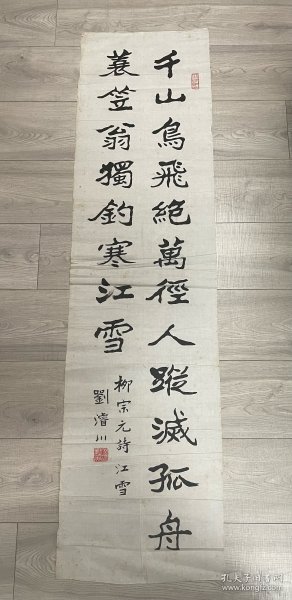 千山鳥飛絕萬徑人蹤滅孤舟
蓑笠翁獨釣寒江雪
柳宗元詩江雪
劉濬川
孔夫子旧书网